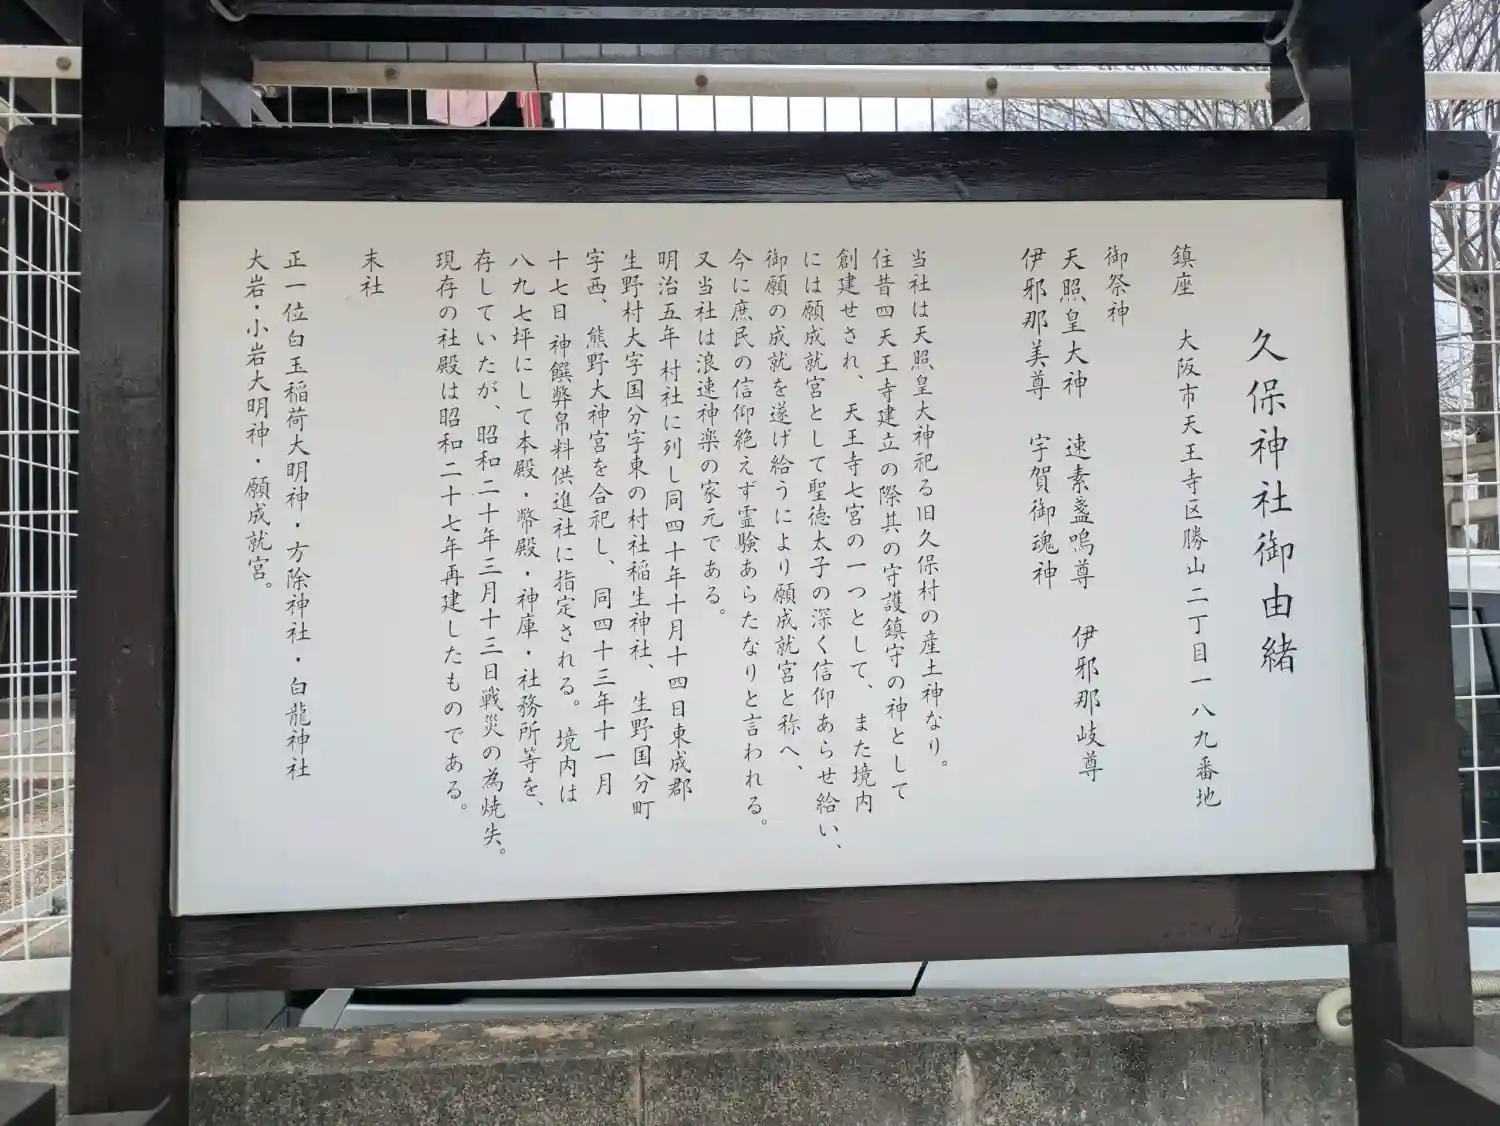 久保神社御由緒
鎮座 大阪市天王寺区勝山二丁目一八九番地
御祭神
天照皇大神 速素盞嗚尊 伊邪那岐尊
伊邪那美尊 宇賀御魂神
当社は天照皇大神祀る旧久保村の産土神なり。
住昔四天王寺建立の際其の守護鎮守の神として
創建せされ、天王寺七宮の一つとして、また境内
には願成就宮として聖徳太子の深く信仰あらせ給い、
御願の成就を遂げ給うにより願成就宮と称へ、
今に庶民の信仰絶えず霊験あらたなりと言われる。
又当社は浪速神楽の家元である。
明治五年 村社に列し同四十年十月十四日東成郡
生野村大字国分字東の村社稲生神社、生野国分町
字西、熊野大神宮を合祀し、同四十三年十一月
十七日 神饌弊帛料供進社に指定される。境内は
八九七坪にして本殿・幣殿・神庫・社務所等を、
存していたが、昭和二十年三月十三日戦災の為焼失。
現存の社殿は昭和二十七年再建したものである。
末社
正一位白玉稲荷大明神・方除神社・白龍神社
大岩・小岩大明神・願成就宮。